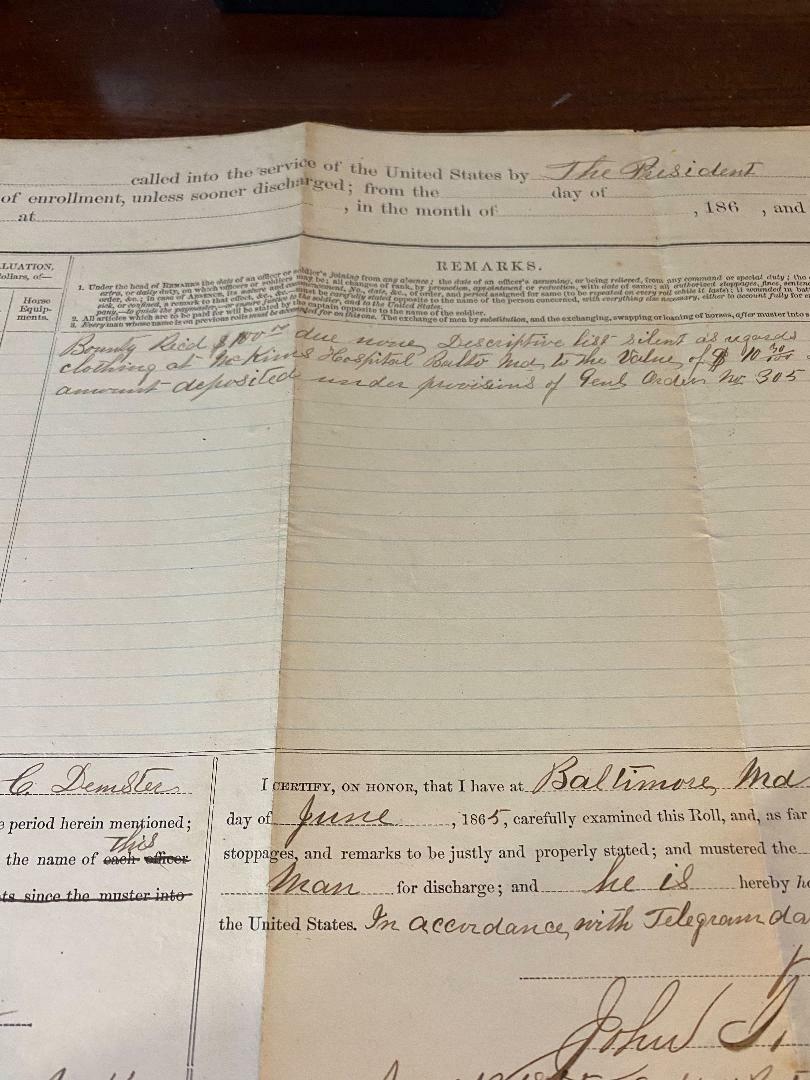 called into the service of the United States by The President
of enrollment, unless sooner discharged; from the day of
at , in the month of , 186 , and
LUATION,
ollars, of—
Horse
Equip-
ments.
REMARKS.
1. Under the head of REMARKS the date of an officer or soldier's joining from any absence; the date of an officer's assuming, or being relieved, from any command or special duty; the
extra, or daily duty, on which officers or soldiers may be; all changes of rank, by promotion, appointment or reduction, with date of same; all authorized stoppages, fines, senten
order, &c.; in case of ABSENCE, its nature and commencement, No., date, &c., of order, and period assigned for same (to be repeated on every roll while it lasts); if wounded in batt
sick, or confined, a remark to that effect, &c., &c., must be carefully stated opposite to the name of the person concerned, with everything else necessary, either to account fully for e
pany,—to guide the paymaster,—or ensure justice to the soldier, and to the United States.
2. All articles which are to be paid for will be stated by the captain opposite to the name of the soldier.
3. Every man whose name is on previous rolls must be accounted for on this one. The exchange of men by substitution, and the exchanging, swapping or loaning of horses, after muster into s
Bounty Recd $100 00 due none, Descriptive list silent as regards
clothing at McKims Hospital Balto Md to the Value of $ 10 30/100
amount deposited under provisions of Genl Orders No. 305
C. Demster
e period herein mentioned;
this
the name of each officer
ts since the muster into
I CERTIFY, ON HONOR, that I have at Baltimore, Md
day of June , 1865, carefully examined this Roll, and, as far
stoppages, and remarks to be justly and properly stated; and mustered the
Man for discharge; and he is hereby ho
the United States. In accordance, with Telegram da
John